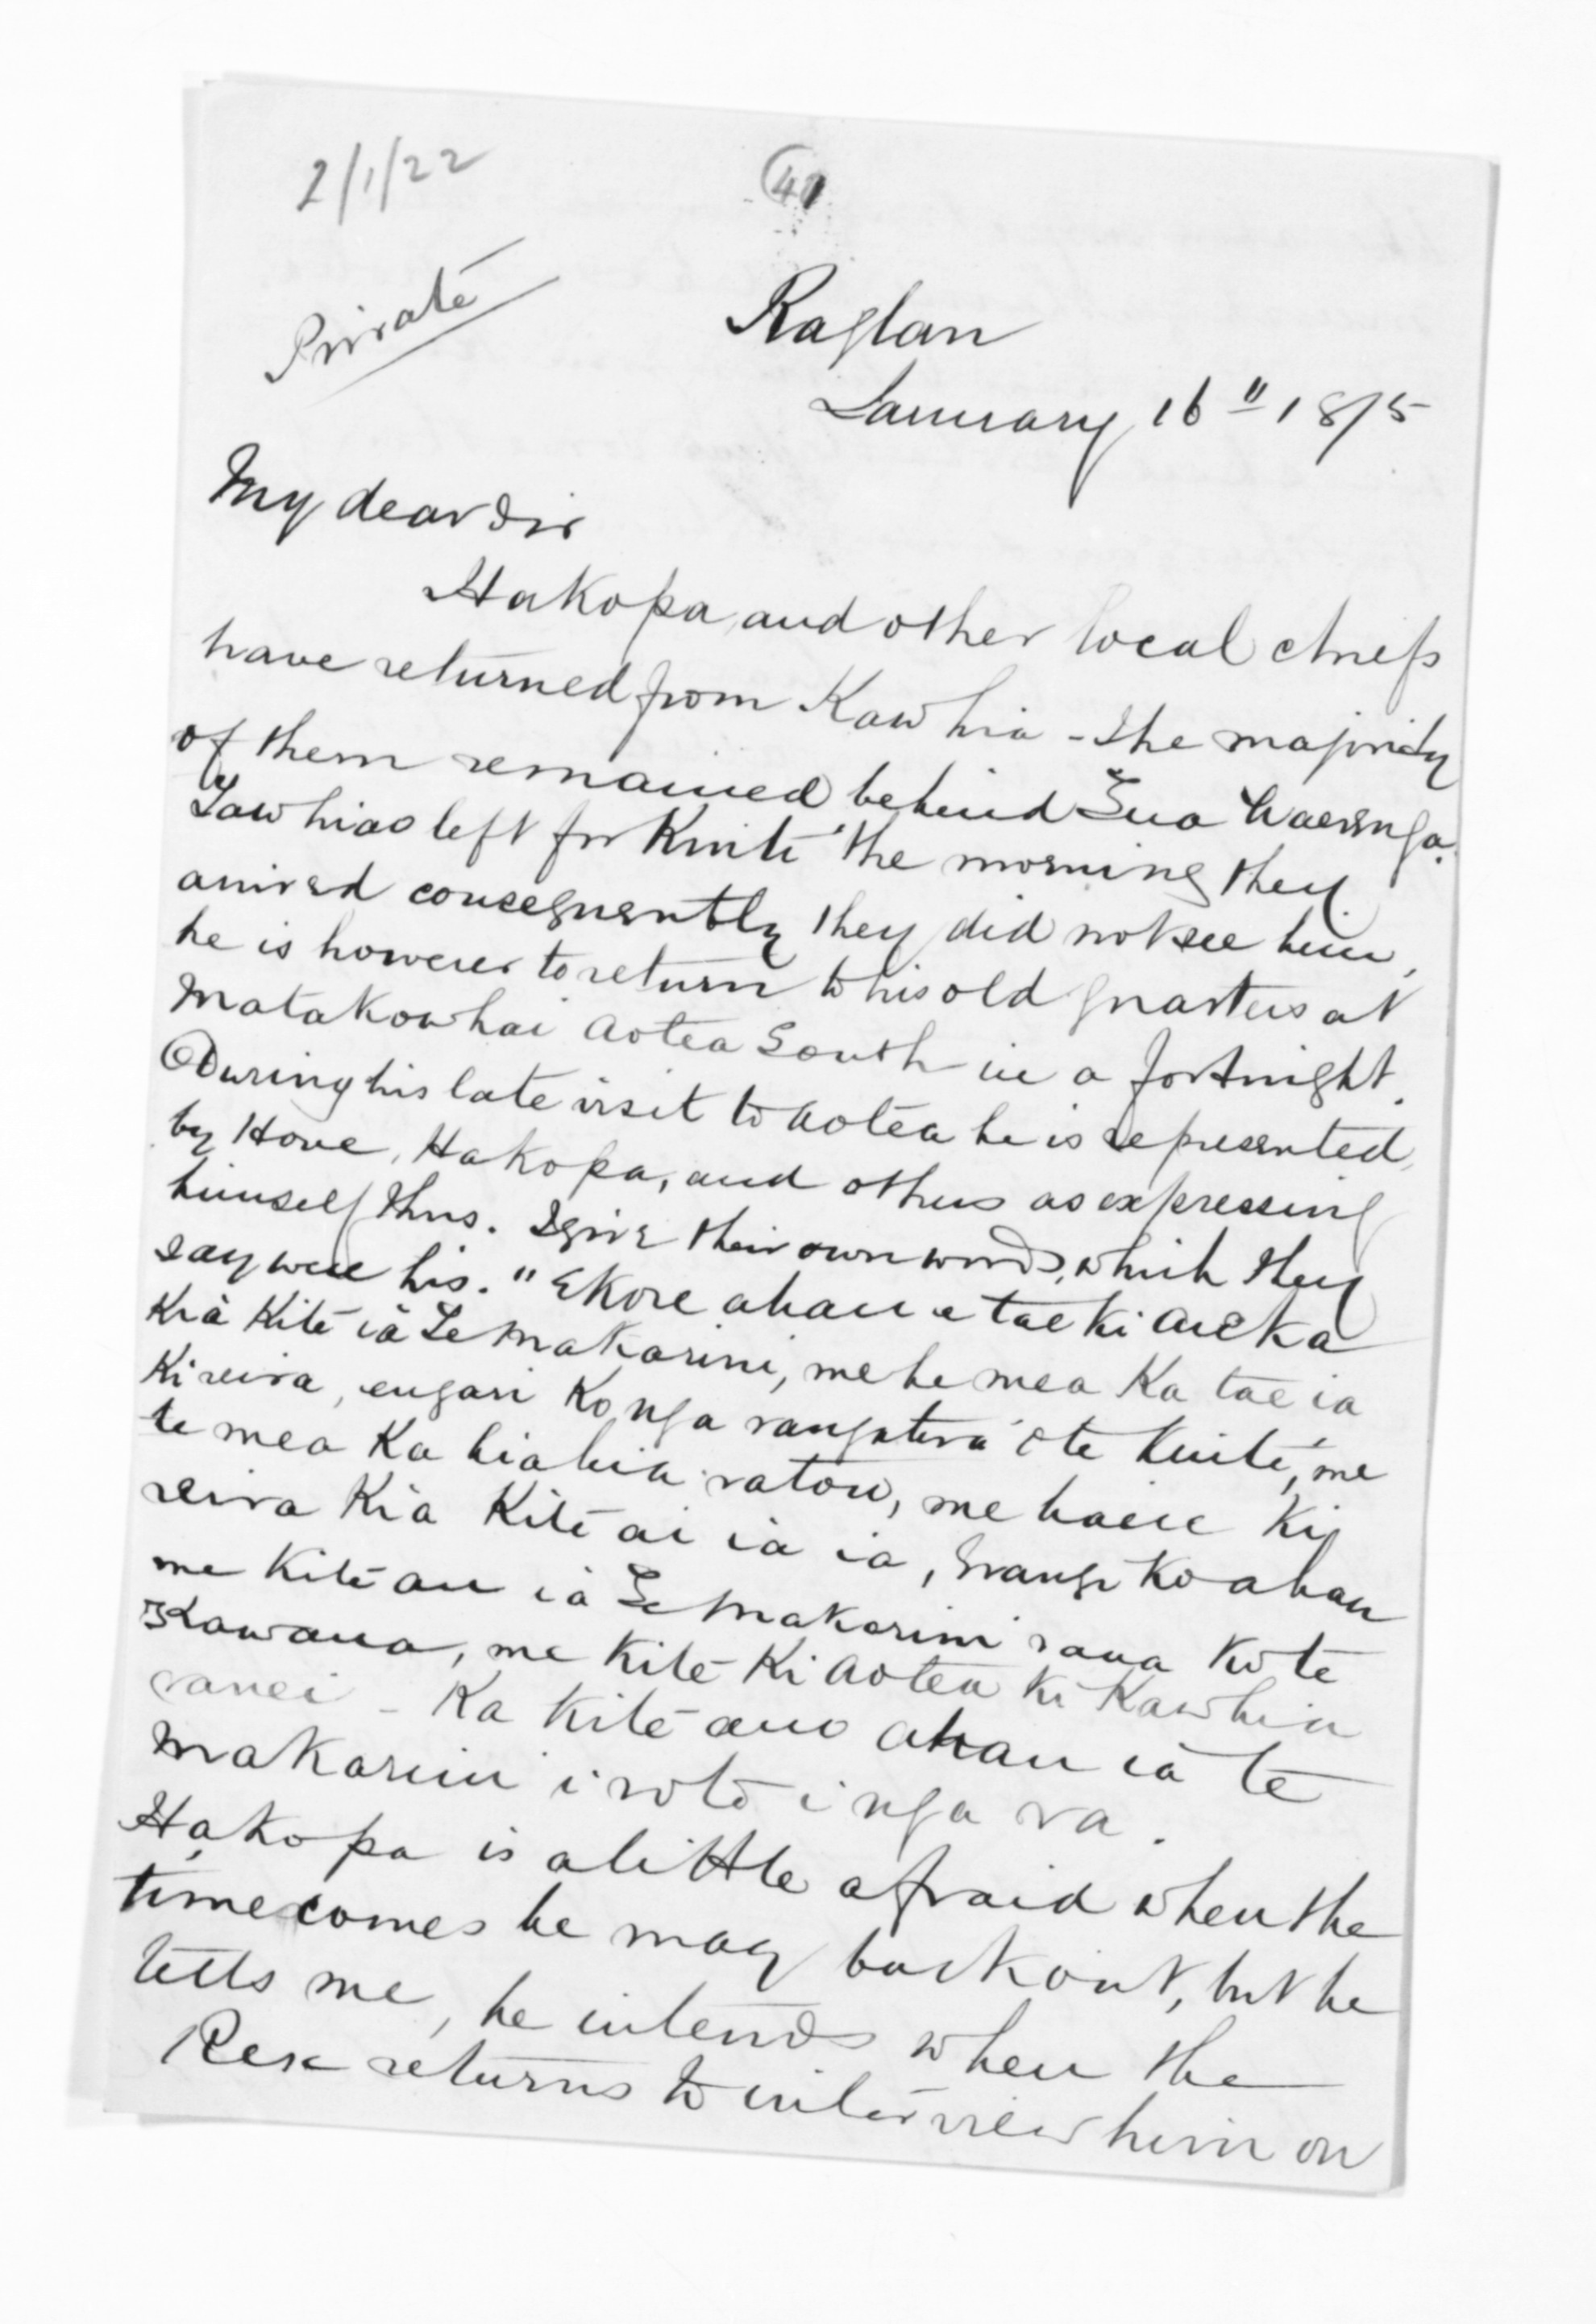 2/1/22
41
Private
Raglan
January 16" 1875
My dear Sir
Hakopa, and other local chiefs
have returned from Kawhia - the majority
of them remained behind Tua Waerenga.
Tawhiao left for Kuiti the morning they
arrived consequently they did not see him,
he is however to return to his old quarters at
Matakowhai Aotea South in a fortnight.
During his late visit to Aotea he is represented,
by Hone, Hakopa, and others as expressing
himself thus. I give their own words, which they
say were his. "Ekore ahau e tae ki
Kia Kite ia Te Makarini, me he mea Ka tae ia
Ki reira, engari Ko nga rangatira o te Kuiti, me
te mea Ka hiahia ratou, me haere Ki
reira Kia Kite ai ia ia, Ko ahau
me Kite au ia Te Makarini raua Ko te
Kawana, me Kite Ki Aotea Ki Kawhia
ranei - Ka Kite ano ahau ia te
Makarini i roto i nga ra.
Hakopa is a little afraid when the
time comes he may back out, but he
tells me, he intends when the
Rex returns to interview him on